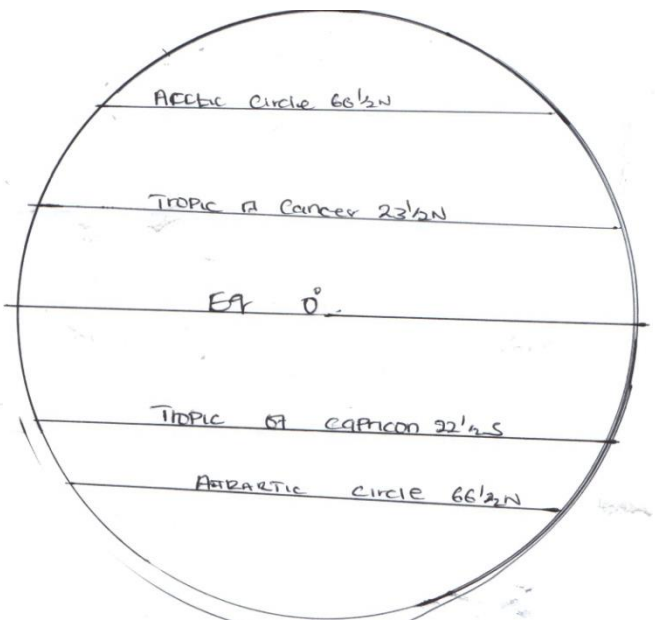 Arctic Circle 66½N
Tropic of Cancer 23½N
Eq 0°
Tropic of capricon 22½S
ANTRARTIC circle 66½N